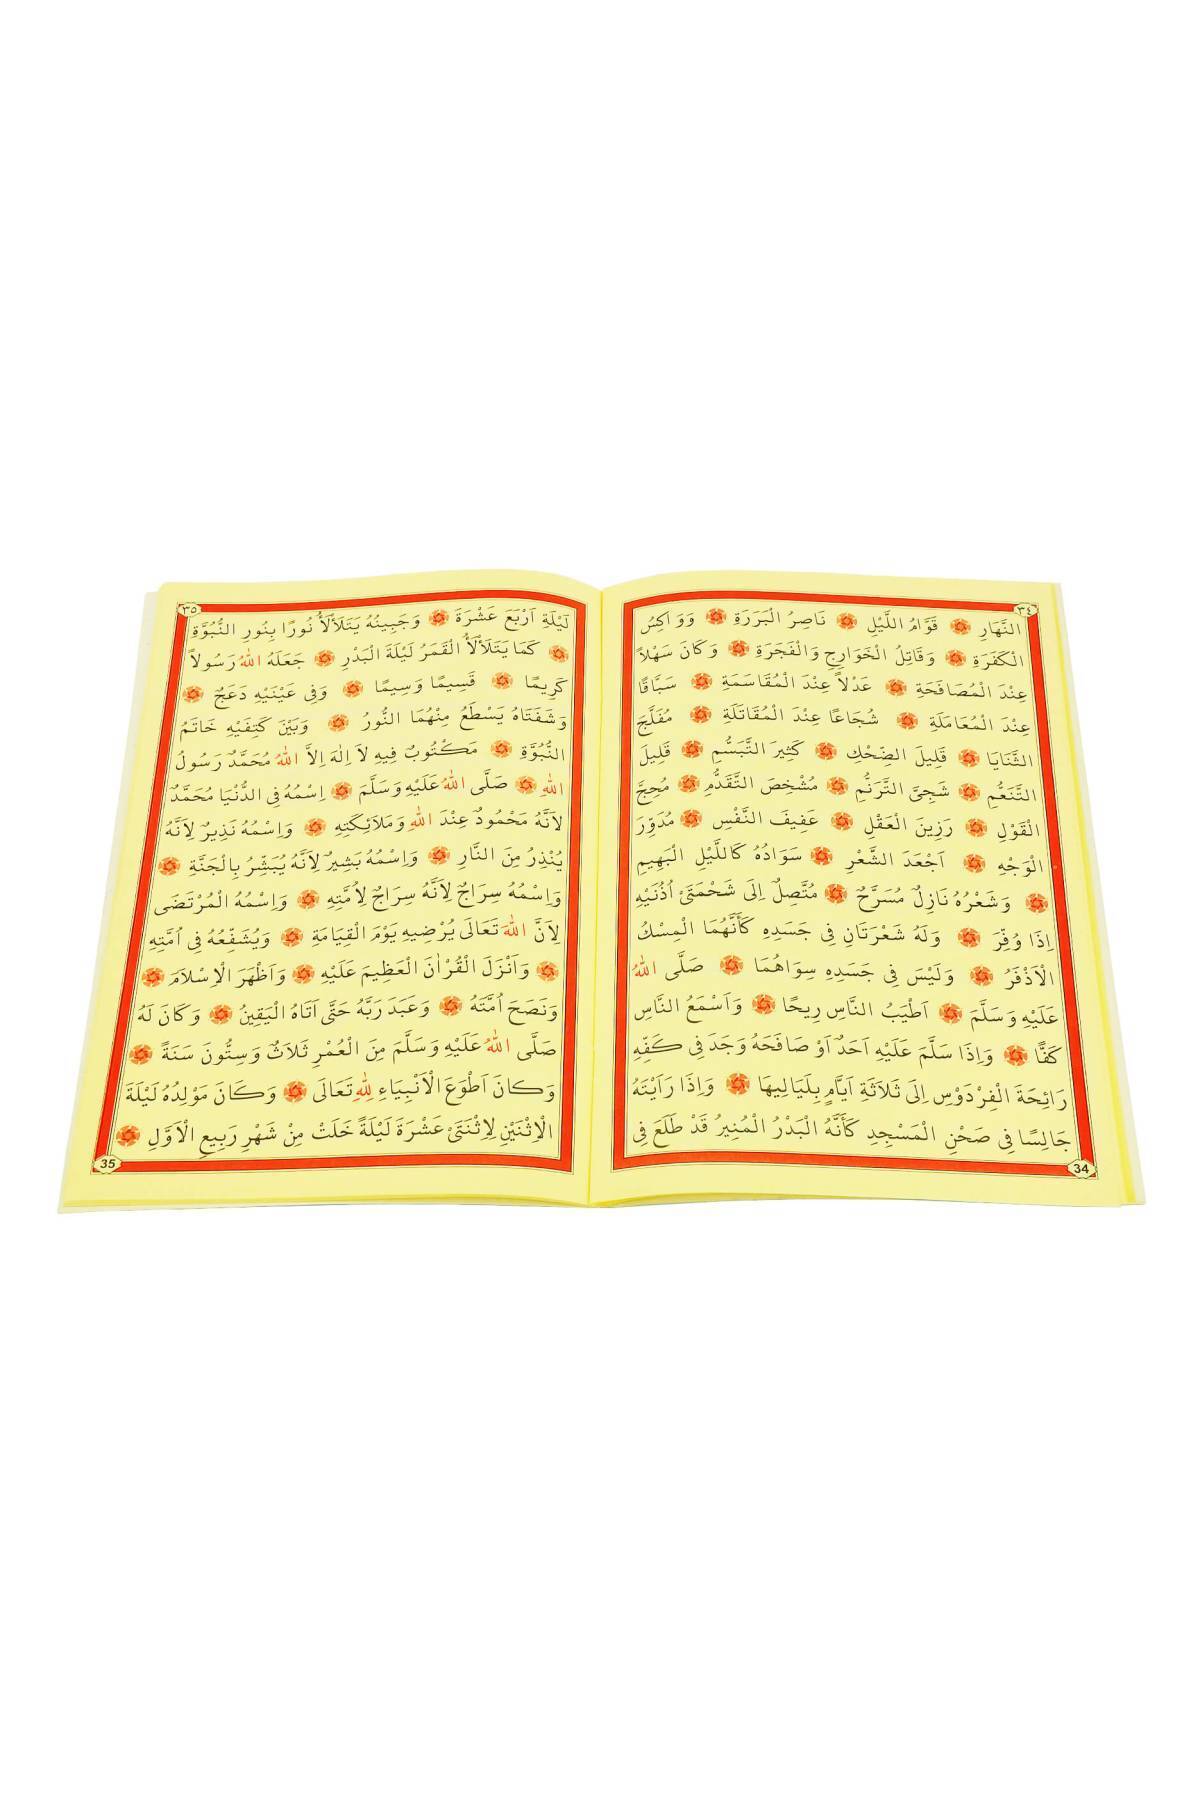 ٣٤
النَّهَارِ قَوَّامُ اللَّيْلِ نَاصِرُ الْبَرَرَةِ وَوَاكِسُ
الْكَفَرَةِ وَقَاتِلُ الْخَوَارِجِ وَالْفَجَرَةِ وَكَانَ سَهْلاً
عِنْدَ الْمُصَافَحَةِ عَدْلاً عِنْدَ الْمُقَاسَمَةِ سَبَّاقًا
عِنْدَ الْمُعَامَلَةِ شُجَاعًا عِنْدَ الْمُقَاتَلَةِ مُفَلَّجَ
الثَّنَايَا قَلِيلَ الضِّحْكِ كَثِيرَ التَّبَسُّمِ قَلِيلَ
التَّنَعُّمِ شَجِىَّ التَّرَنُّمِ مُشْخِصَ التَّقَدُّمِ مُحِجَّ
الْقَوْلِ رَزِينَ الْعَقْلِ عَفِيفَ النَّفْسِ مُدَوِّرَ
الْوَجْهِ اَجْعَدَ الشَّعْرِ سَوَادُهُ كَاللَّيْلِ الْبَهِيمِ
وَشَعْرُهُ نَازِلٌ مُسَرَّحٌ مُتَّصِلٌ اِلَى شَحْمَتَىْ اُذُنَيْهِ
اِذَا وُفِّرَ وَلَهُ شَعْرَتَانِ فِى جَسَدِهِ كَأَنَّهُمَا الْمِسْكُ
الْاَذْفَرُ وَلَيْسَ فِى جَسَدِهِ سِوَاهُمَا صَلَّى اللهُ
عَلَيْهِ وَسَلَّمَ اَطْيَبُ النَّاسِ رِيحًا وَاَسْمَعُ النَّاسِ
كَفًّا وَاِذَا سَلَّمَ عَلَيْهِ اَحَدٌ اَوْ صَافَحَهُ وَجَدَ فِى كَفِّهِ
رَائِحَةَ الْفِرْدَوْسِ اِلَى ثَلَاثَةِ اَيَّامٍ بِلَيَالِيهَا وَاِذَا رَاَيْتَهُ
جَالِسًا فِى صَحْنِ الْمَسْجِدِ كَأَنَّهُ الْبَدْرُ الْمُنِيرُ قَدْ طَلَعَ فِى
34
٣٥
لَيْلَةِ اَرْبَعَ عَشْرَةَ وَجَبِينُهُ يَتَلَأْلَأُ نُورًا بِنُورِ النُّبُوَّةِ
كَمَا يَتَلَأْلَأُ الْقَمَرُ لَيْلَةَ الْبَدْرِ جَعَلَهُ اللهُ رَسُولاً
كَرِيمًا قَسِيمًا وَسِيمًا وَفِى عَيْنَيْهِ دَعَجٌ
وَشَفَتَاهُ يَسْطَعُ مِنْهُمَا النُّورُ وَبَيْنَ كَتِفَيْهِ خَاتَمُ
النُّبُوَّةِ مَكْتُوبٌ فِيهِ لاَ اِلٰهَ اِلاَّ اللهُ مُحَمَّدٌ رَسُولُ
اللهِ صَلَّى اللهُ عَلَيْهِ وَسَلَّمَ اِسْمُهُ فِى الدُّنْيَا مُحَمَّدٌ
لاَنَّهُ مَحْمُودٌ عِنْدَ اللهِ وَمَلاَئِكَتِهِ وَاِسْمُهُ نَذِيرٌ لِاَنَّهُ
يُنْذِرُ مِنَ النَّارِ وَاِسْمُهُ بَشِيرٌ لِاَنَّهُ يُبَشِّرُ بِالْجَنَّةِ
وَاِسْمُهُ سِرَاجٌ لِاَنَّهُ سِرَاجٌ لِاُمَّتِهِ وَاِسْمُهُ الْمُرْتَضَى
لِاَنَّ اللهَ تَعَالَى يُرْضِيهِ يَوْمَ الْقِيَامَةِ وَيُشَفِّعُهُ فِى اُمَّتِهِ
وَاَنْزَلَ الْقُرْاٰنَ الْعَظِيمَ عَلَيْهِ وَاَظْهَرَ الْاِسْلاَمَ
وَنَصَحَ اُمَّتَهُ وَعَبَدَ رَبَّهُ حَتَّى اَتَاهُ الْيَقِينُ وَكَانَ لَهُ
صَلَّى اللهُ عَلَيْهِ وَسَلَّمَ مِنَ الْعُمْرِ ثَلاَثٌ وَسِتُّونَ سَنَةً
وَكَانَ اَطْوَعَ الْاَنْبِيَاءِ لِلهِ تَعَالَى وَكَانَ مَوْلِدُهُ لَيْلَةَ
الْاِثْنَيْنِ لِاِثْنَتَىْ عَشْرَةَ لَيْلَةً خَلَتْ مِنْ شَهْرِ رَبِيعِ الْاَوَّلِ
35